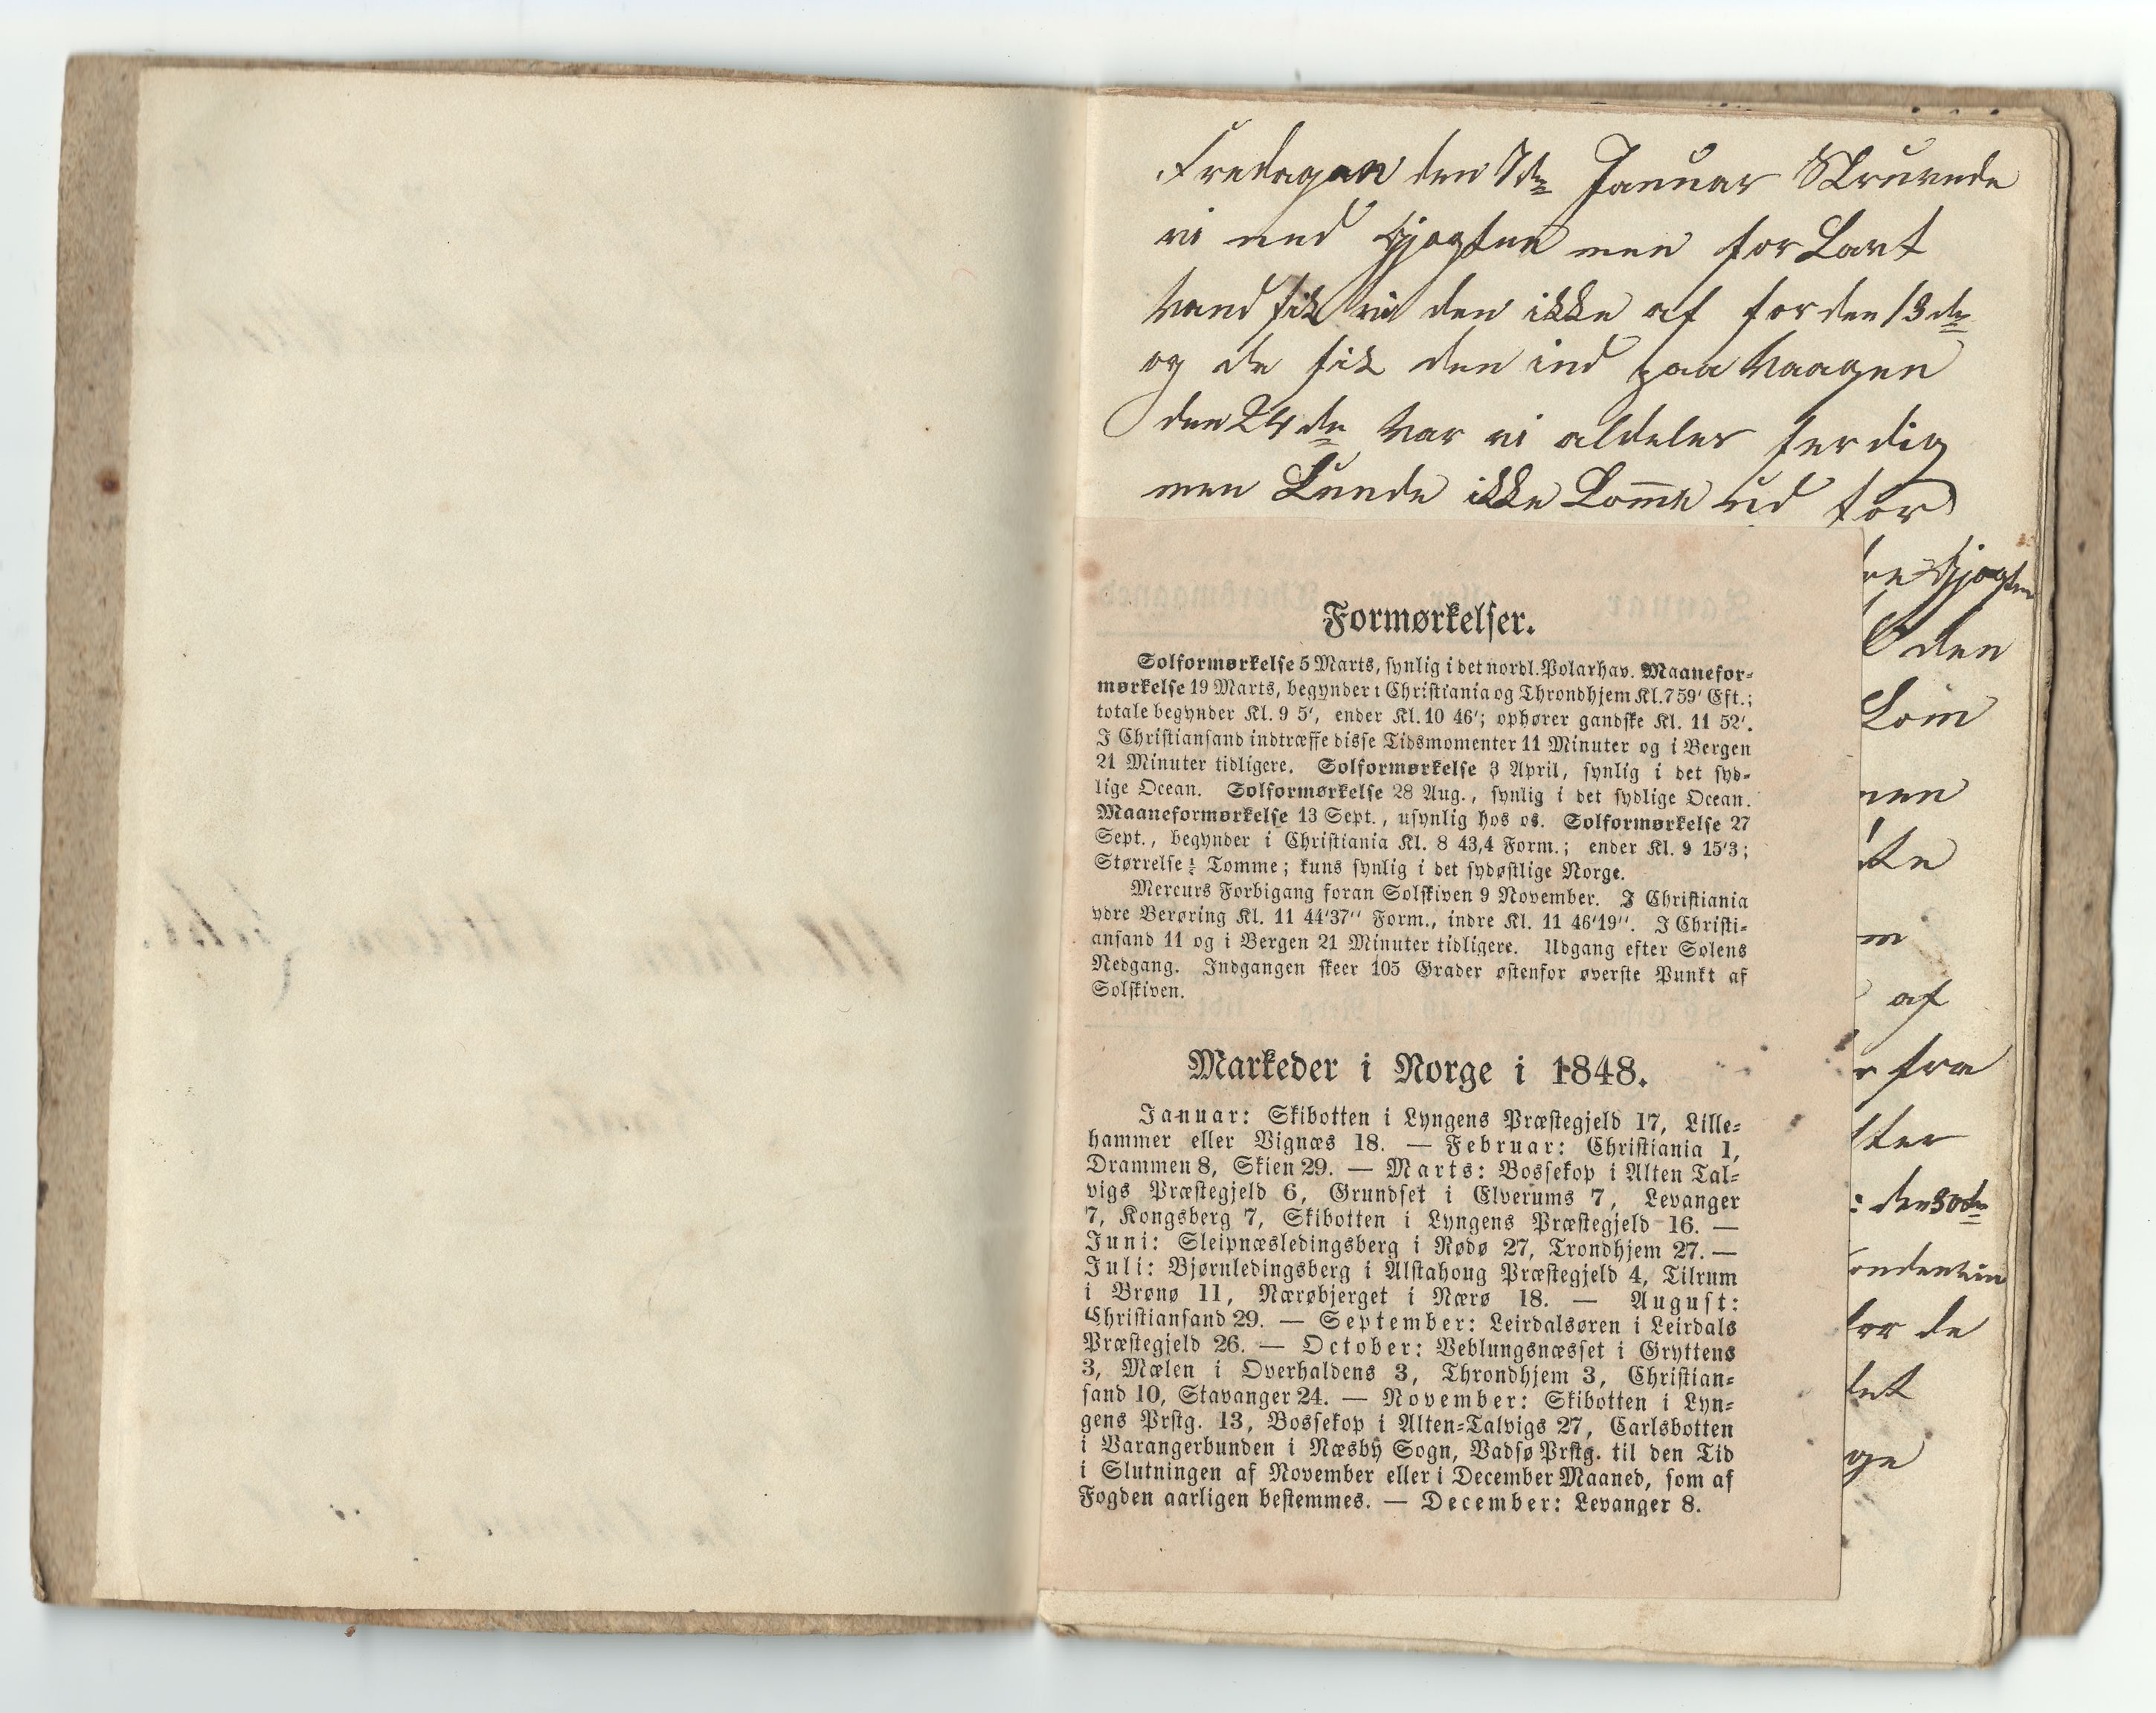 Fredagen den 7de Januar Skruvede
vi ned Gjagten men for Lavt
Vand fik vi den ikke af for den 13de
og de fik den ind paa Vaagen
den 24de var vi aldeles ferdig
men Kunde ikke Komme ud for
Gjagten
den
Kom
men
af
fra
: den 30de
for de
Formørkelser.
Solformørkelse 5 Marts, synlig i det nordl. Polarhav. Maanefor-
mørkelse 19 Marts, begynder i Christiania og Throndhjem Kl. 7 59' Eft.;
totale begynder Kl. 9 5', ender Kl. 10 46'; ophører gandske Kl. 11 52'.
I Christiansand indtræffe disse Tidsmomenter 11 Minuter og i Bergen
21 Minuter tidligere. Solformørkelse 3 April, synlig i det syd-
lige Ocean. Solformørkelse 28 Aug., synlig i det sydlige Ocean.
Maaneformørkelse 13 Sept., usynlig hos os. Solformørkelse 27
Sept., begynder i Christiania Kl. 8 43,4 Form.; ender Kl. 9 15'3;
Størrelse Tomme; kuns synlig i det sydøstlige Norge.
Mercurs Forbigang foran Solskiven 9 November. I Christiania
ydre Berøring Kl. 11 44'37'' Form., indre Kl. 11 46'19''. I Christi-
ansand 11 og i Bergen 21 Minuter tidligere. Udgang efter Solens
Nedgang. Indgangen skeer 105 Grader østenfor øverste Punkt af
Solskiven.
Markeder i Norge i 1848.
Januar: Skibotten i Lyngens Præstegjeld 17, Lille-
hammer eller Vignæs 18. — Februar: Christiania 1,
Drammen 8, Skien 29. — Marts: Bossekop i Alten Tal-
vigs Præstegjeld 6, Grundset i Elverums 7, Levanger
7, Kongsberg 7, Skibotten i Lyngens Præstegjeld 16. —
Juni: Sleipnæsledingsberg i Rødø 27, Trondhjem 27. —
Juli: Bjørnledingsberg i Alstahoug Præstegjeld 4, Tilrum
i Brønø 11, Nærøbjerget i Nærø 18. — August:
Christiansand 29. — September: Leirdalsøren i Leirdals
Præstegjeld 26. — October: Veblungsnæsset i Gryttens
3, Mælen i Overhaldens 3, Throndhjem 3, Christian-
sand 10, Stavanger 24. — November: Skibotten i Lyn-
gens Prstg. 13, Bossekop i Alten-Talvigs 27, Carlsbotten
i Varangerbunden i Næsby Sogn, Vadsø Prstg. til den Tid
i Slutningen af November eller i December Maaned, som af
Fogden aarligen bestemmes. — December: Levanger 8.